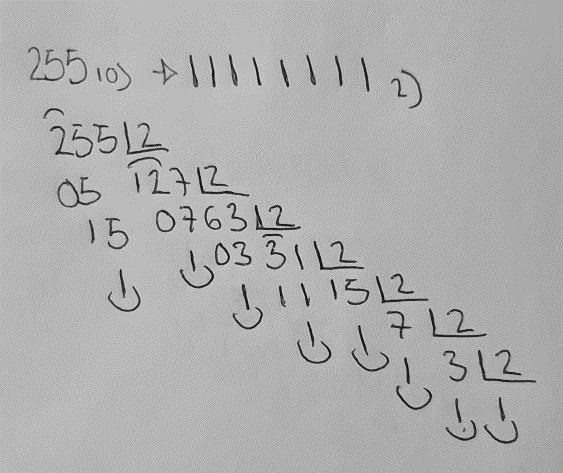 255(10) → 11111111 2)
255 |2
05 127 |2
15 07 63 |2
1 1 03 31 |2
1 11 15 |2
1 1 7 |2
1 3 |2
1 1